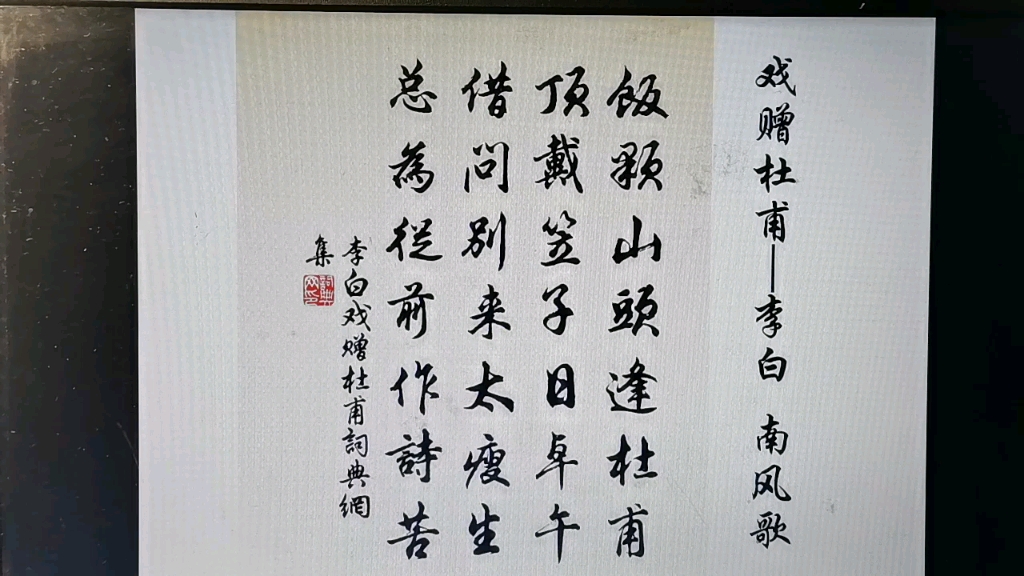 戏赠杜甫—李白 南风歌
飯顆山頭逢杜甫
頂戴笠子日卓午
借問别来太瘦生
总為從前作詩苦
李白戏赠杜甫詞典網
集